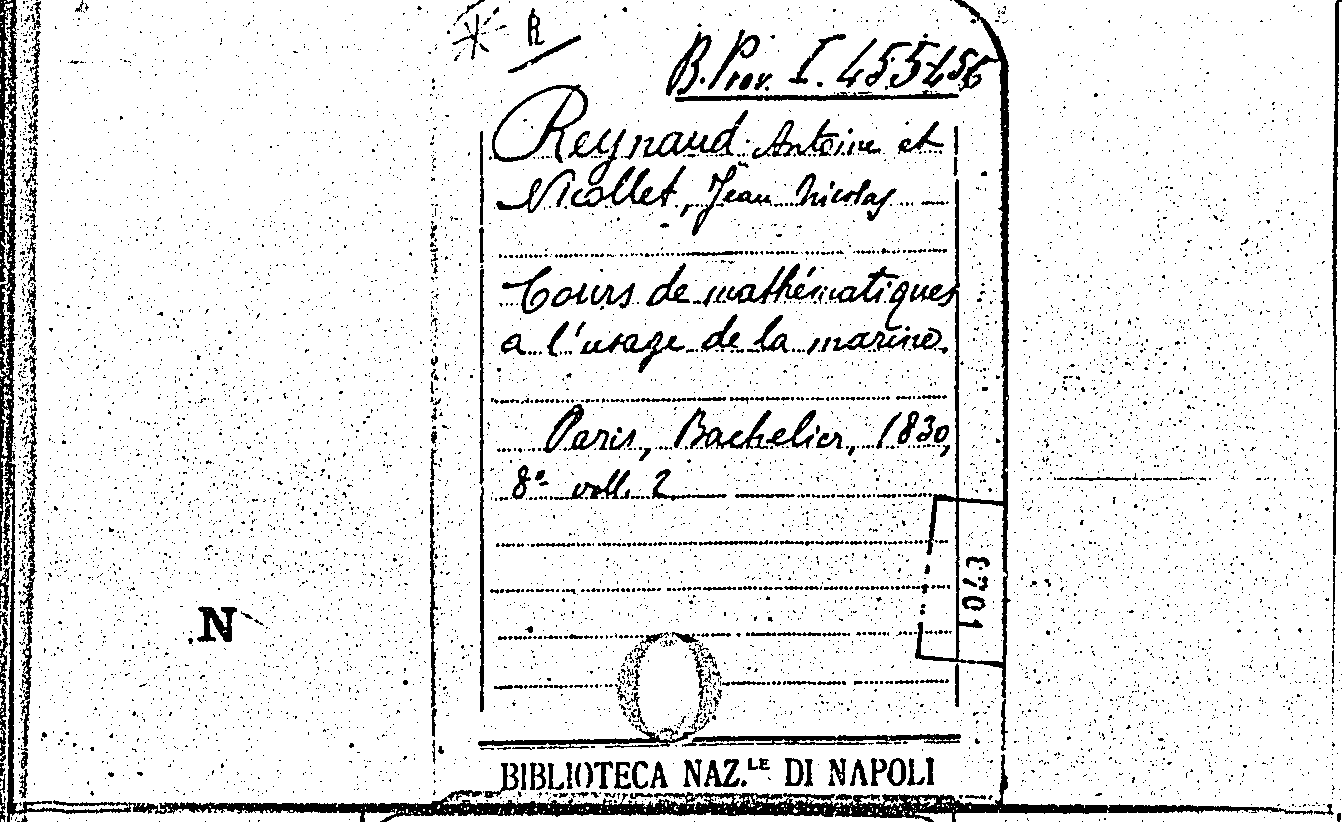 R
B. Prov. I. 455-456
Reynaud Antoine et
Nicollet, Jean Nicolas
Cours de mathématiques
a l'usage de la marine.
Paris, Bachelier, 1830,
8° voll. 2
N
BIBLIOTECA NAZ.LE DI NAPOLI